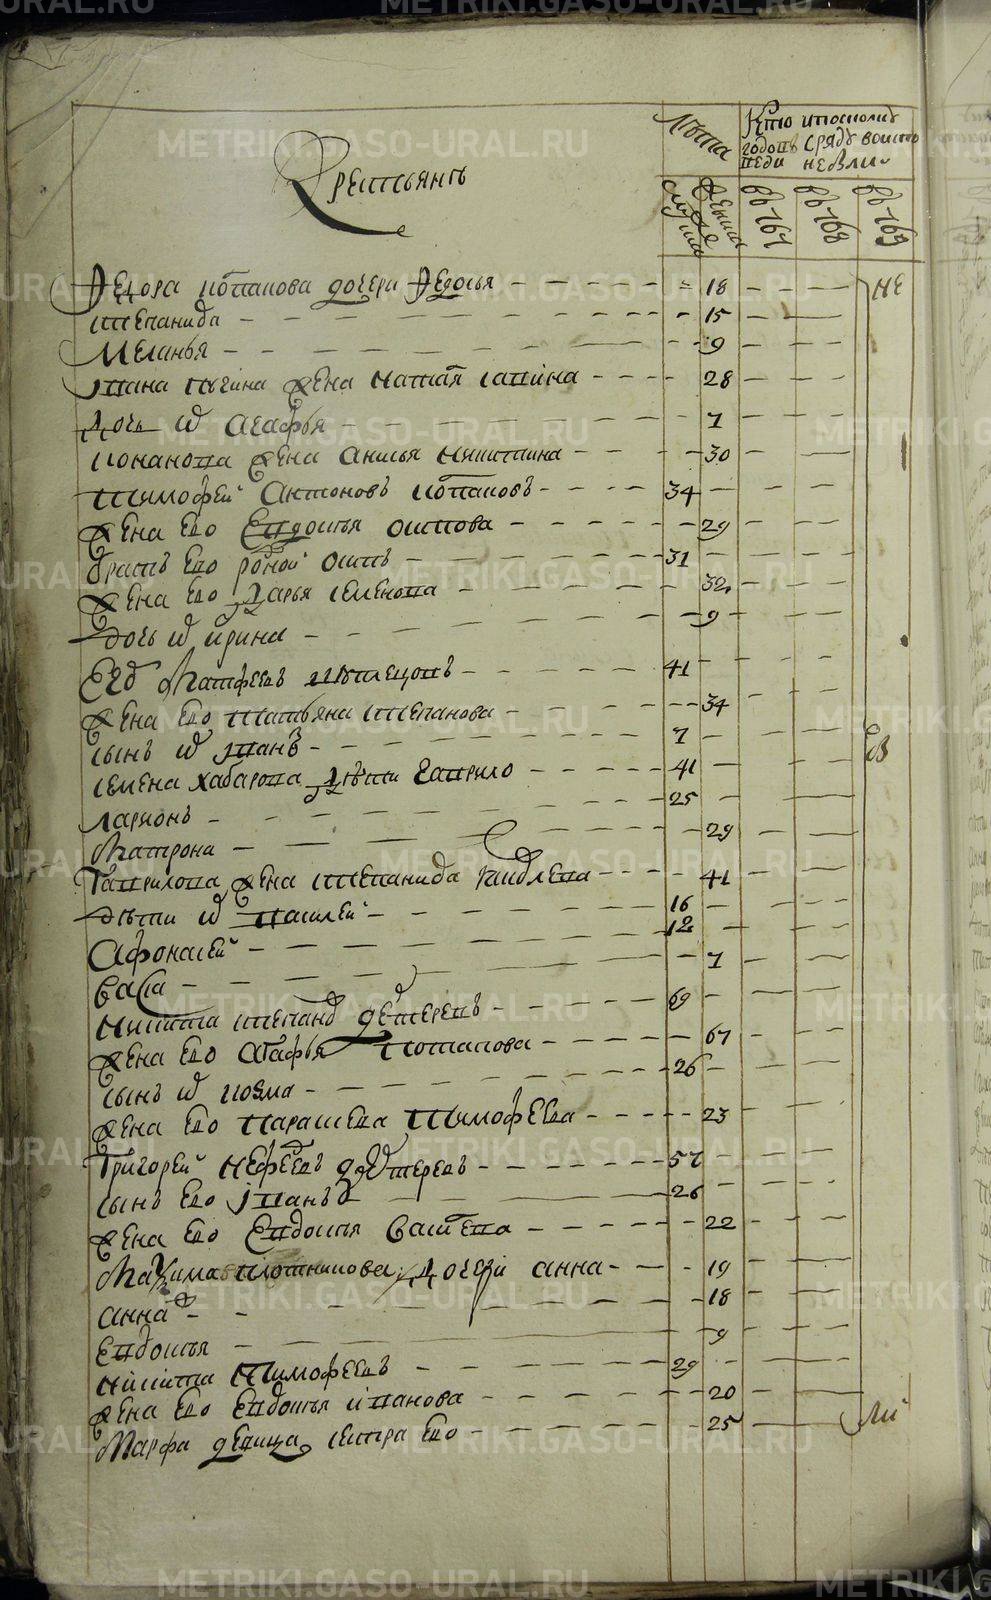 METRIKI.GASO-URAL.RU
Крестьянъ
Лѣта
Кто и посколку
годовъ сряду во испо
веди не были
мужеска
женска
въ 767
въ 768
въ 769
Ѳедора Потапова дочери Ѳедосья 18 не
Степанида 15
Меланья 9
Ивана жена Наталя Савина 28
Дочь ѿ Агафья 7
жена Анисья Никитина 30
Тимофей Антоновъ Потаповъ 34
Жена ево Евдокѣя Осипова 29
братъ ево родной Осипъ 31
Жена ево Дарья Семенова 32
дочь ѿ Ирина 9
Матфеевъ 41
Жена ево Татьяна Степанова 34
сынъ ѿ Иванъ 7 бы
Семена Хабарова дѣти Гаврило 41
Ларионъ 25
Матрона 29
Гаврилова жена Степанида 41
дѣти ѿ Василей 16
Афонасей 12
Васса 7
Никита Степановъ Дехтеревъ 69
Жена ево Агафья Потапова 67
сынъ ѿ Козма 26
Жена ево Парасцева Тимофеева 23
Григорей Нефедовъ Дехтеревъ 57
сынъ ево Иванъ 26
Жена ево Евдокья 22
Максима Плотникова дочери Анна 19
Анна 18
Евдокья 9
Никита Тимофеевъ 29
Жена ево Евдокья Иванова 20
Марфа девица сестра ево 25 ли